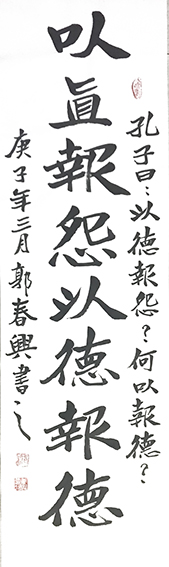 孔子曰:以德報怨?何以報德?
㕥直報怨以德報德
庚子年三月郭春興書之